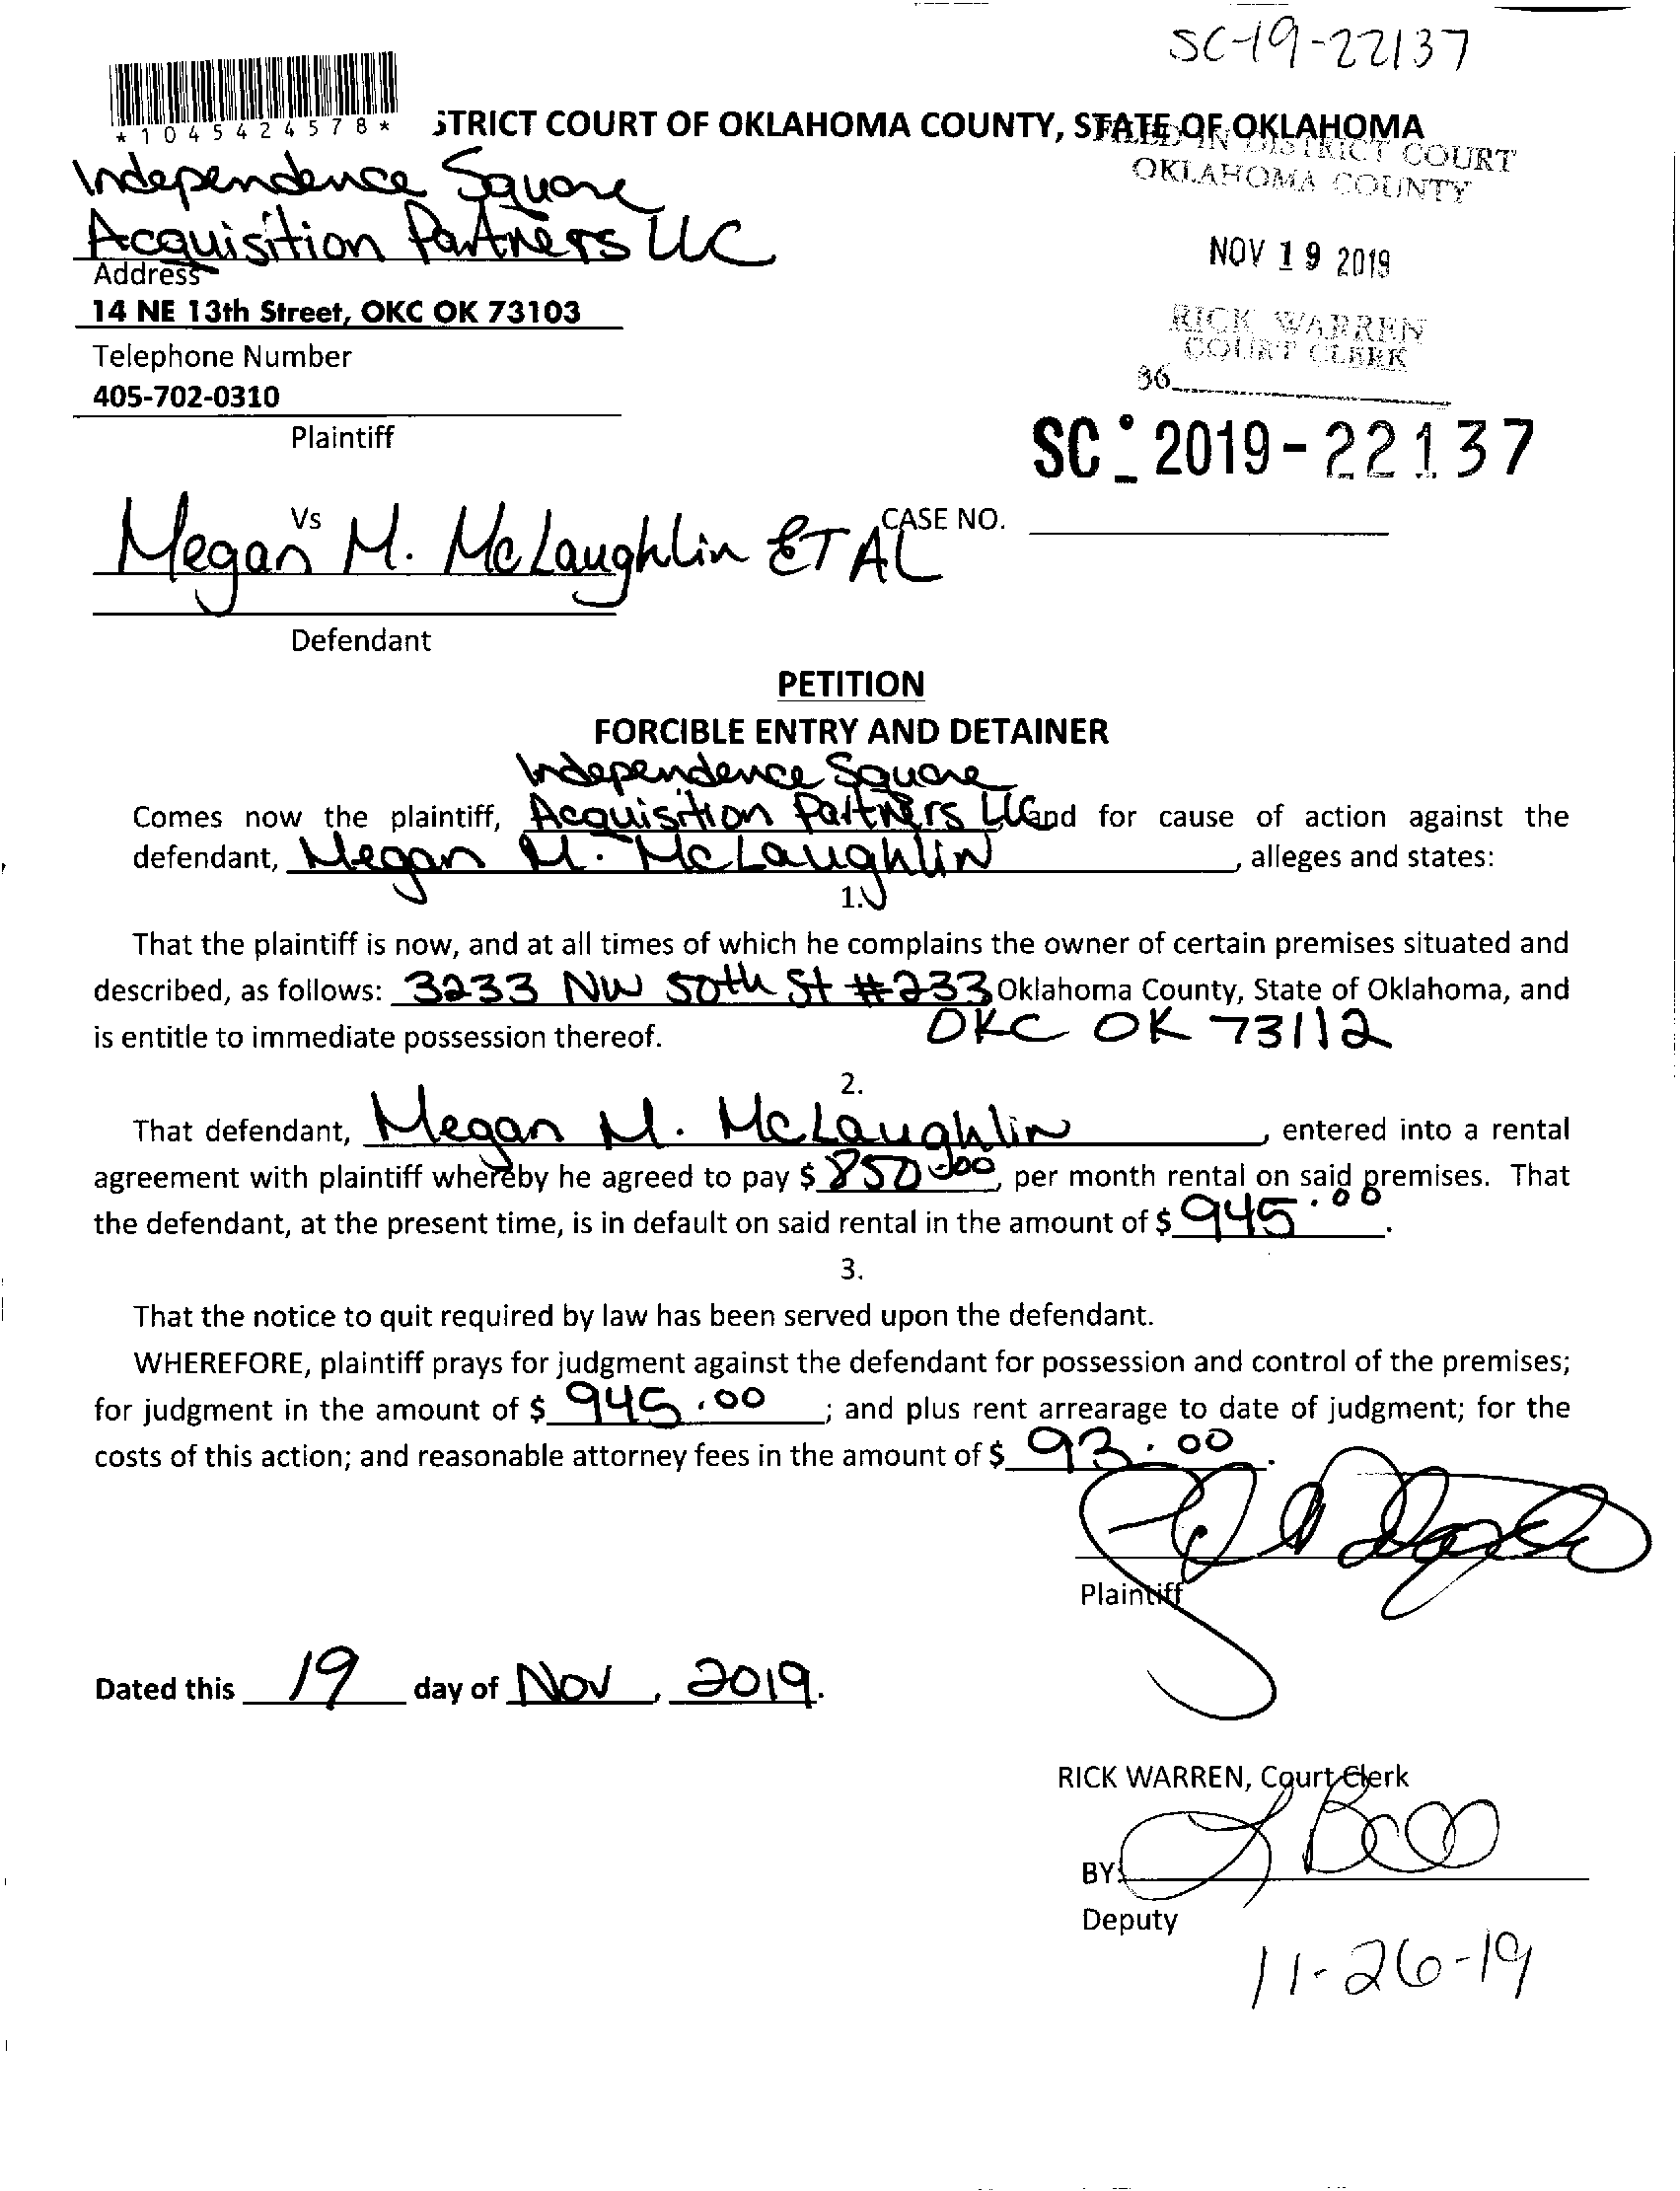 SC-19-22137
*1045424578*
STRICT COURT OF OKLAHOMA COUNTY, STATE OF OKLAHOMA
FILED IN DISTRICT COURT
OKLAHOMA COUNTY
Independence Square
Acquisition Partners LLC
NOV 19 2019
Address
14 NE 13th Street, OKC OK 73103
RICK WARREN
COURT CLERK
Telephone Number
36
405-702-0310
Plaintiff
SC - 2019-22137
Vs
CASE NO.
Megan M. McLaughlin ET AL
Defendant
PETITION
FORCIBLE ENTRY AND DETAINER
Independence Square
Comes now the plaintiff, Acquisition Partners LLC and for cause of action against the
defendant, Megan M. McLaughlin, alleges and states:
1.
That the plaintiff is now, and at all times of which he complains the owner of certain premises situated and
described, as follows: 3233 NW 50th St #233, Oklahoma County, State of Oklahoma, and
is entitle to immediate possession thereof. OKC OK 73112
2.
That defendant, Megan M. McLaughlin, entered into a rental
agreement with plaintiff whereby he agreed to pay $ 850.00, per month rental on said premises. That
the defendant, at the present time, is in default on said rental in the amount of $ 945.00.
3.
That the notice to quit required by law has been served upon the defendant.
WHEREFORE, plaintiff prays for judgment against the defendant for possession and control of the premises;
for judgment in the amount of $ 945.00; and plus rent arrearage to date of judgment; for the
costs of this action; and reasonable attorney fees in the amount of $ 93.00.
Plaintiff
Dated this 19 day of Nov, 2019.
RICK WARREN, Court Clerk
BY:
Deputy
11-26-19